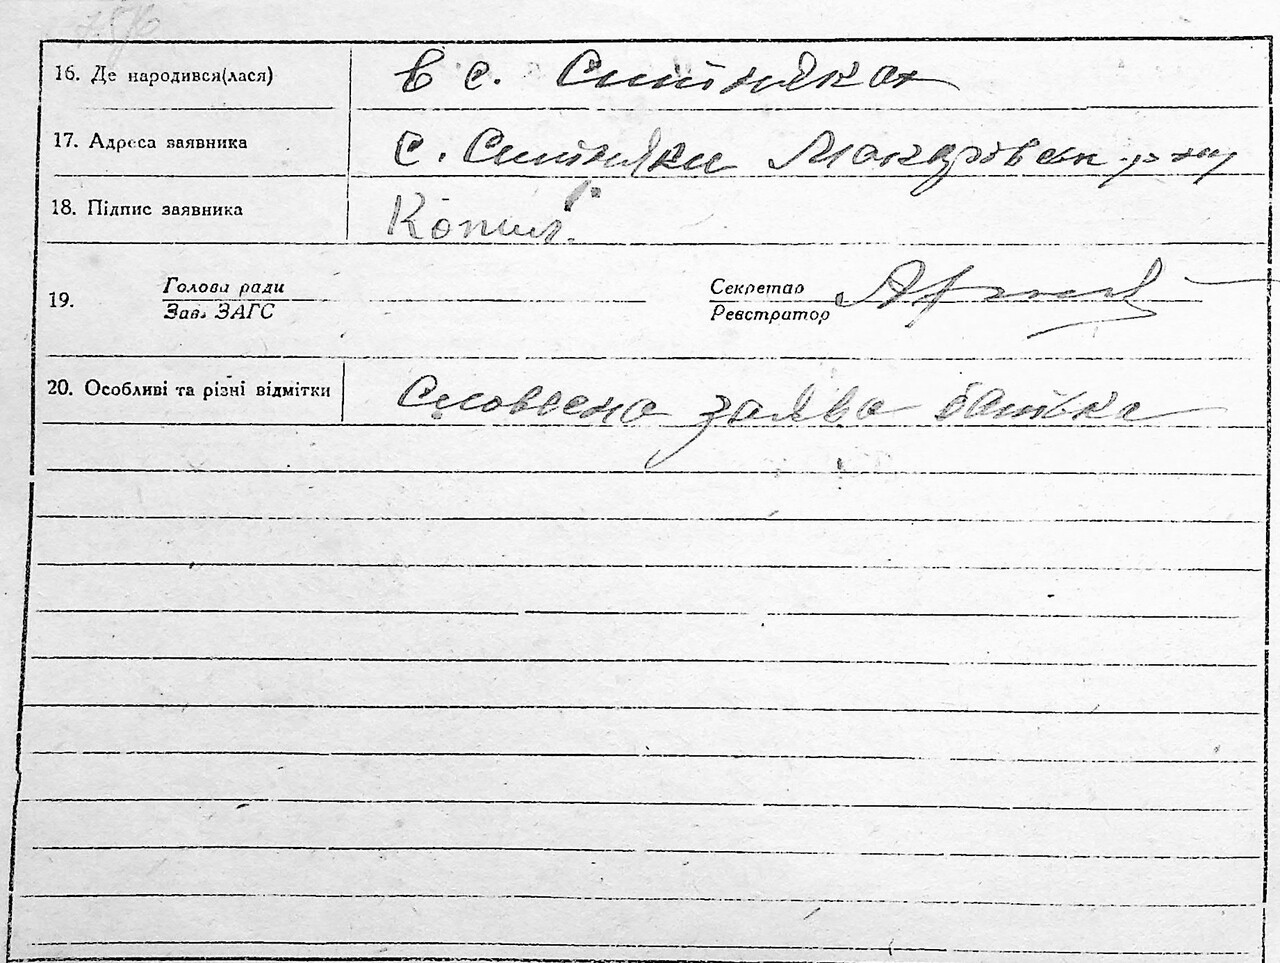 16. Де народився(лася) в с. Ситняках
17. Адреса заявника с. Ситняки Макарівськ. р-ну
18. Підпис заявника Копил
19. Голова ради Секретар
Зав. ЗАГС Реєстратор
20. Особливі та різні відмітки Словесна заява батька